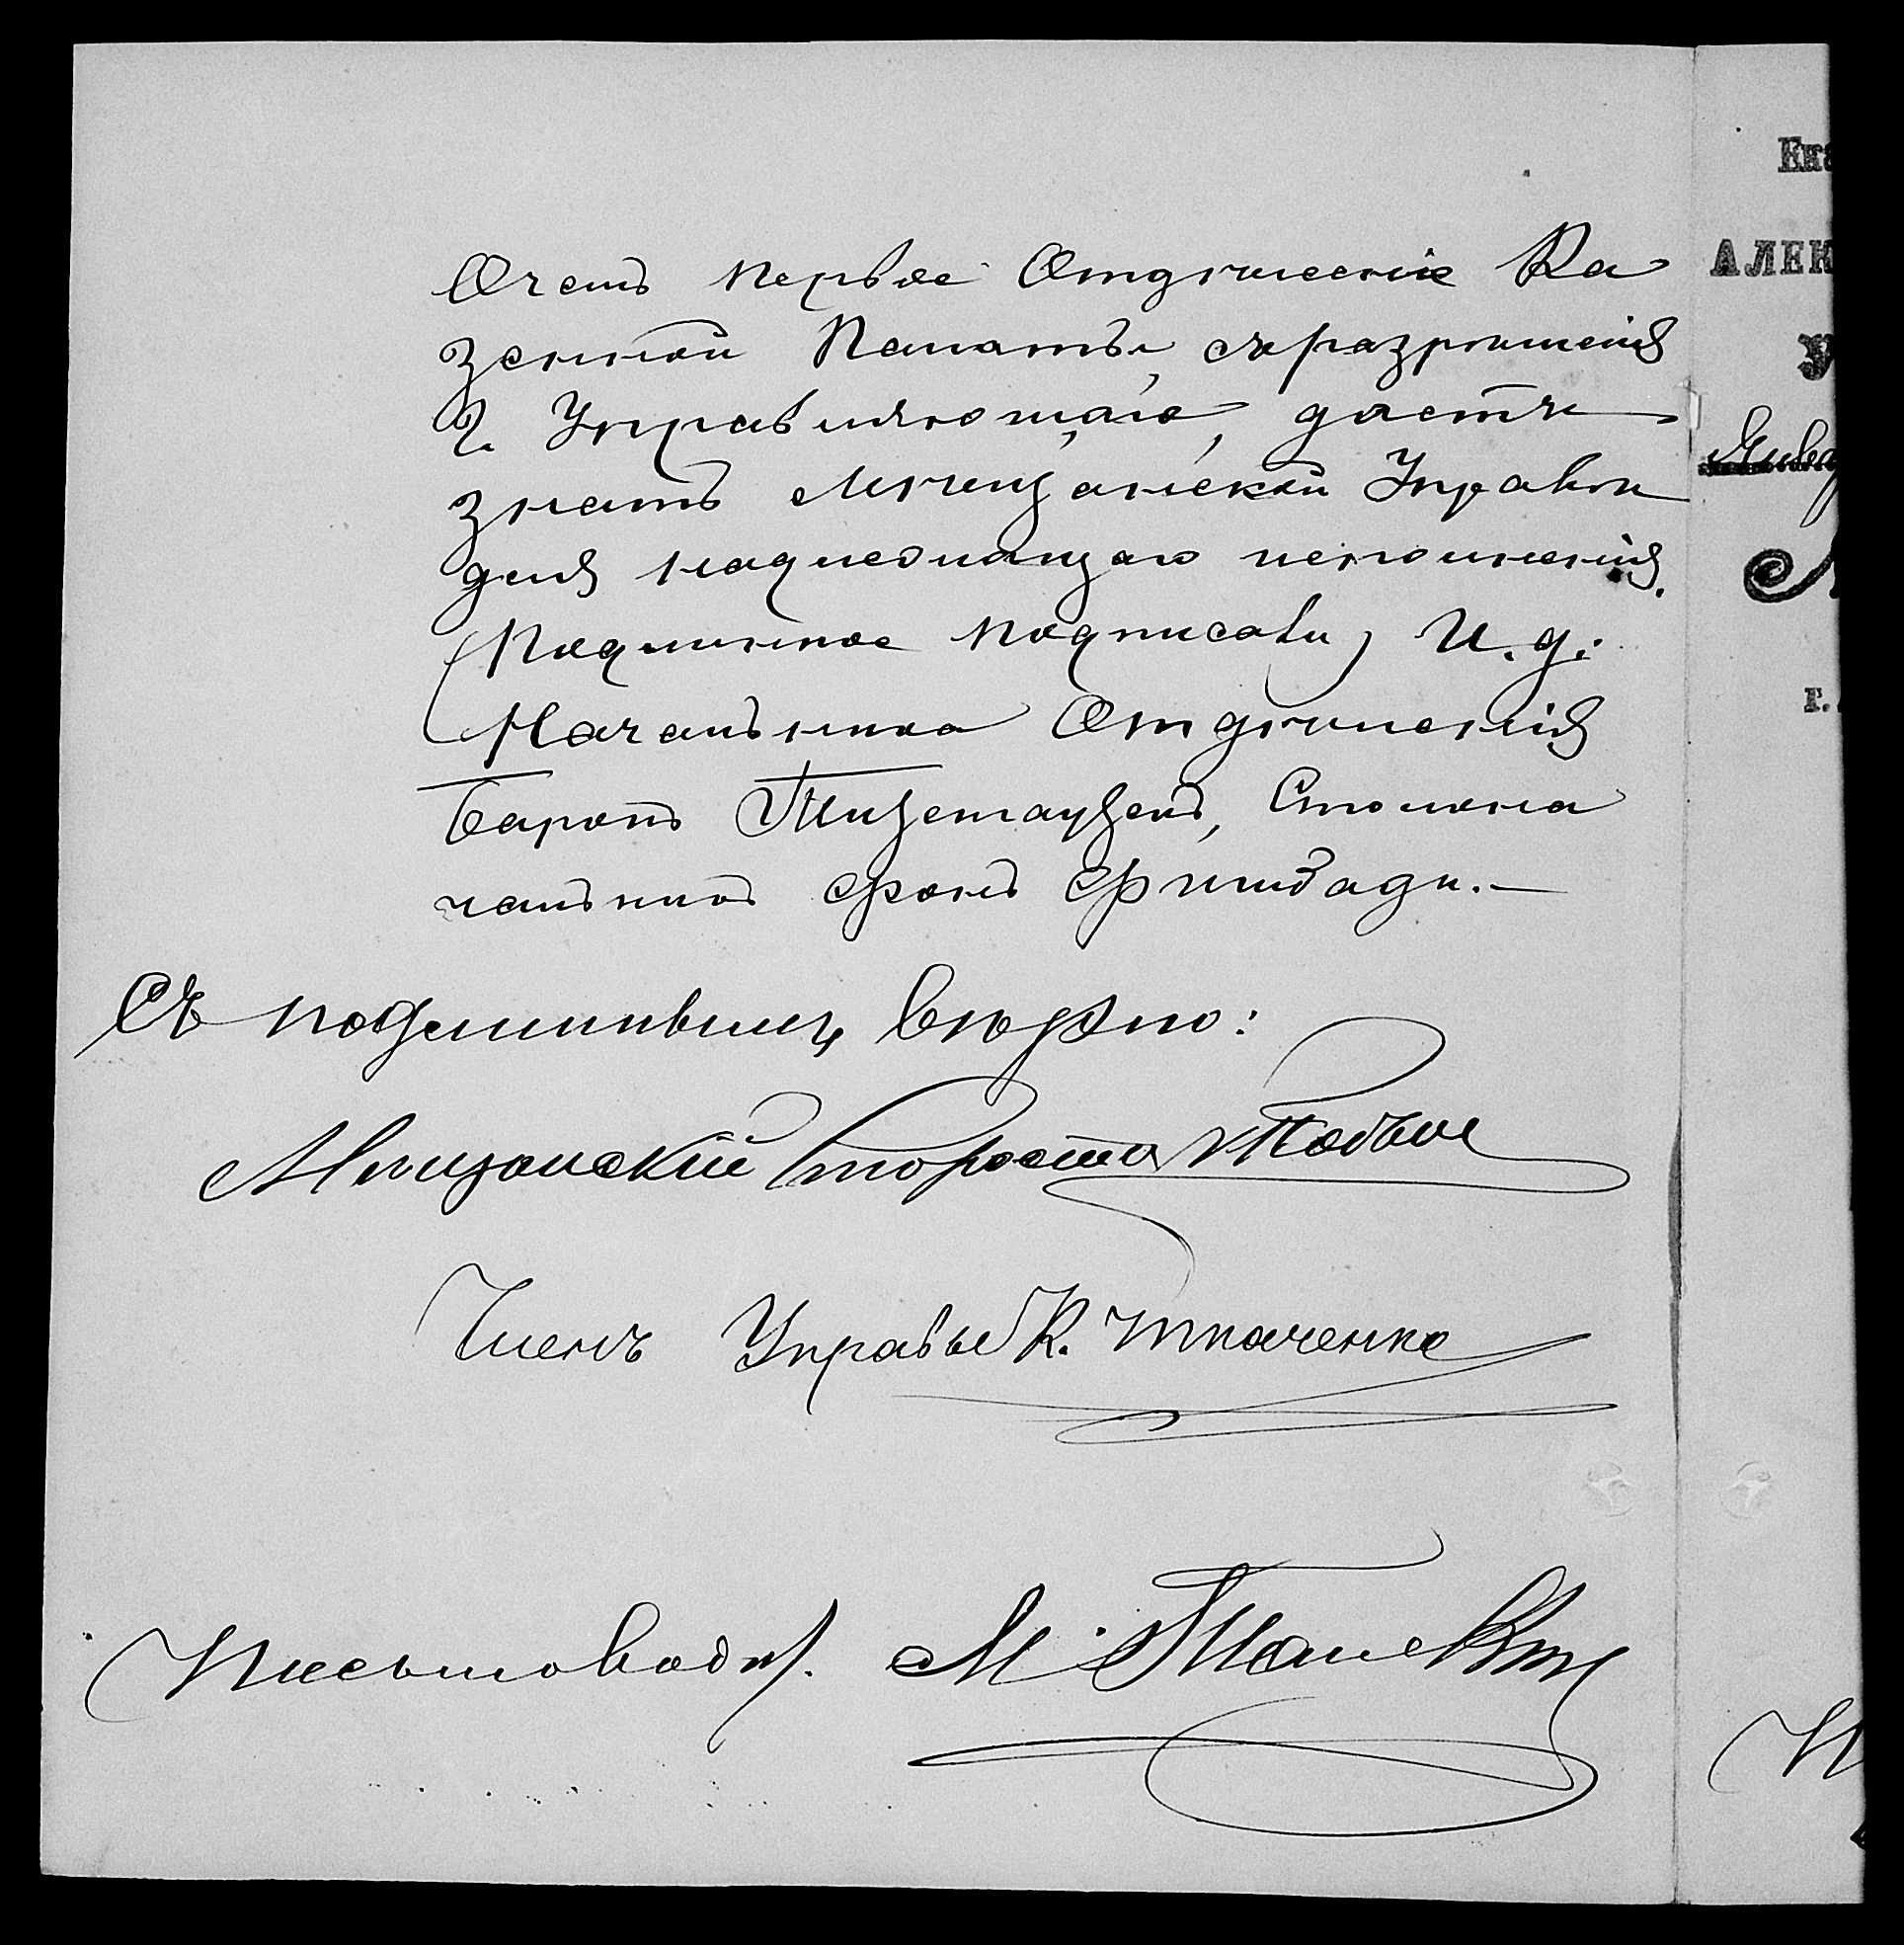 О чемъ первое Отдѣленіе Ка
зенной Палаты, съ разрѣшенія
Г. Управляющаго, даетъ
знать Мѣщанской Управѣ
для надлежащаго исполненія.
(Подлинное подписали) И. д.
Начальника Отдѣленія
Баронъ Тизенгаузенъ, Столона
чальникъ фонъ
Съ подлиннымъ вѣрно:
Мѣщанскій Староста
Членъ Управы К. Ткаченко
Письмовод. М.
Ека
АЛЕК
У
Янва
г.